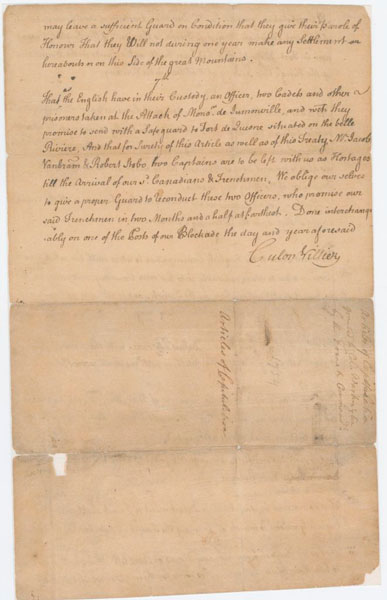 may leave a sufficient Guard on Condition that they give their Parole of
Honour That they Will not during one year make any Settlement on
hereabouts or on this Side of the great Mountains.
7th
That as the English have in their Custody, an Officer, two Cadets and other
prisoners taken at the Attack of Monsr. de Jumonville, and wch they
promise to send with a Safeguard to Fort du Quesne situated on the belle
Riviere, And that for Surety of this Article as well as of this Treaty Mr. Jacob
Vanbraam & Robert Stobo, two Captains are to be left with us as Hostages
till the Arrival of our sd. Canadians & Frenchmen. We oblige our selves
to give a proper Guard to reconduct these two Officers, who promise our
said Frenchmen in two Months and a half at farthest. Done interchange
ably on one of the Posts of our Blockade the day and year aforesaid
Culon Villier
Articles of Capitulation
1754